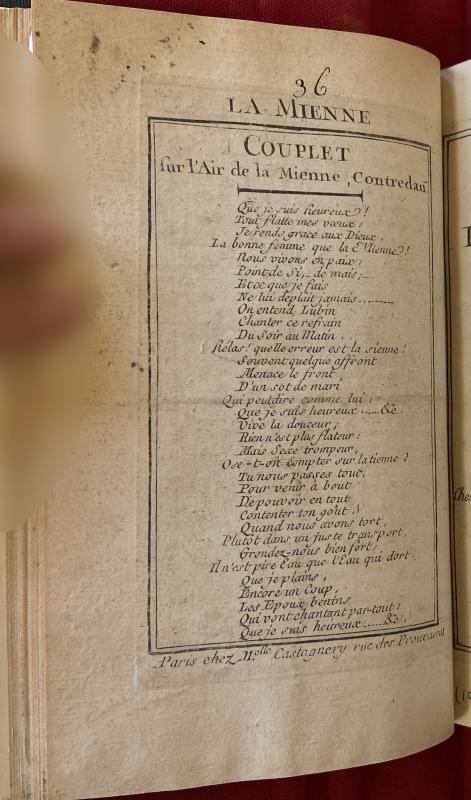 36
LA MIENNE
COUPLET
sur l'Air de la Mienne, Contredan
Que je suis heureux !
Tout flatte mes vœux ;
Je rends grace aux Dieux,
La bonne femme que la Mienne !
Nous vivons en paix ;
Point de Si,.. de mais ;....
Et ce que je fais
Ne lui déplait jamais..........
On entend Lubin
Chanter ce refrain
Du Soir au Matin.
Hélas ! quelle erreur est la sienne !
Souvent quelque affront
Menace le front,
D'un sot de mari
Qui peut dire comme lui :
Que je suis heureux ......&c.
Vive la douceur ;
Rien n'est plus flateur :
Mais Sexe trompeur,
Ose-t-on compter sur la tienne ?
Tu nous passes tout,
Pour venir à bout
De pouvoir en tout
Contenter ton goût.
Quand nous avons tort,
Plutôt dans un juste transport,
Grondez-nous bien fort ;
Il n'est pire Eau que l'Eau qui dort.
Que je plains,
Encore un Coup,
Les Epoux bénins
Qui vont chantant par-tout :
Que je suis heureux ......&c.
Paris chez M.elle Castagnery rue des Prouvaires
Chez